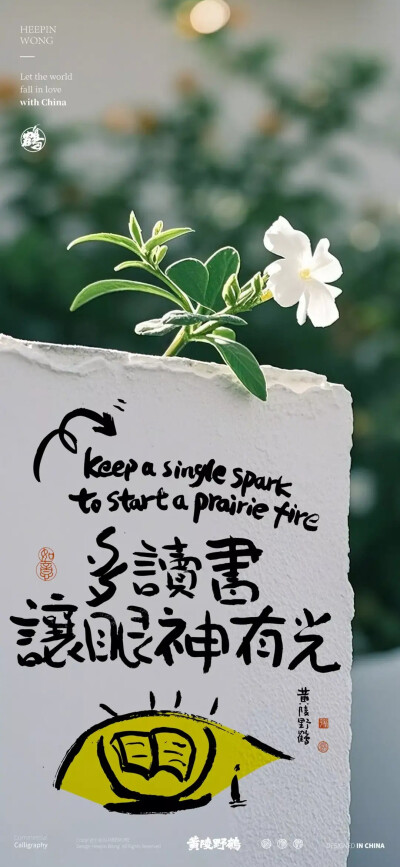 HEEPIN
WONG
Let the world
fall in love
with China
keep a single spark
to start a prairie fire
多讀書
讓眼神有光
如意
黄陵野鶴
Calligraphy
黄陵野鹤
DESIGNED IN CHINA